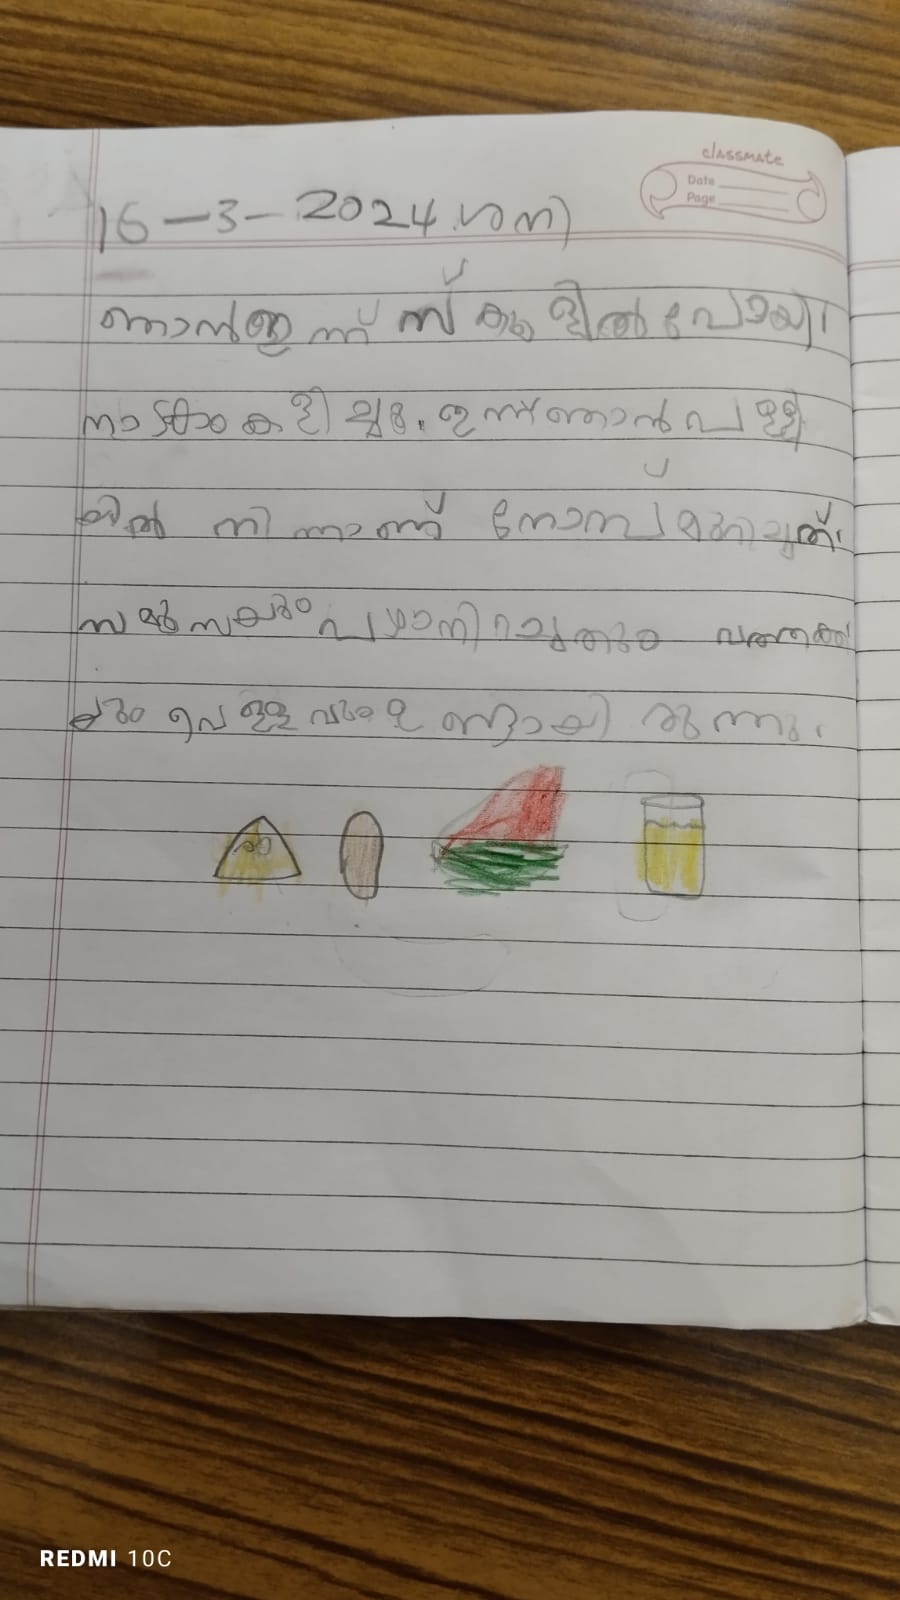 classmate
Date
Page
16-3-2024 ശനി
ഞാൻ ഇന്ന് സ്കൂളിൽ പോയി.
നാടകം കളിച്ചു. ഇന്ന് ഞാൻ പള്ളി
യിൽ നിന്നാണ് നോമ്പ്
സമൂസയും പഴംനിറച്ചതും വത്തക്ക
യും വെള്ളവും ഉണ്ടായിരുന്നു.
REDMI 10C